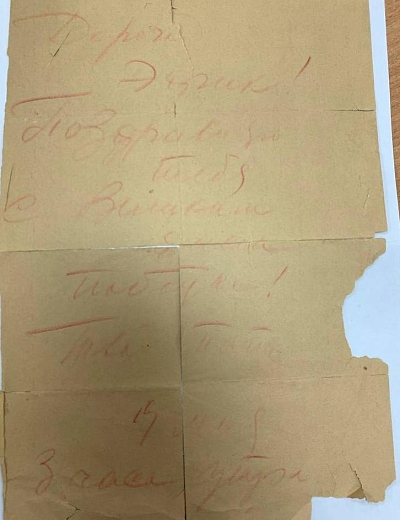 Дорогой
Поздравляю
тебя
с Великим
Днем
Победы!
9 мая
3 часа утра